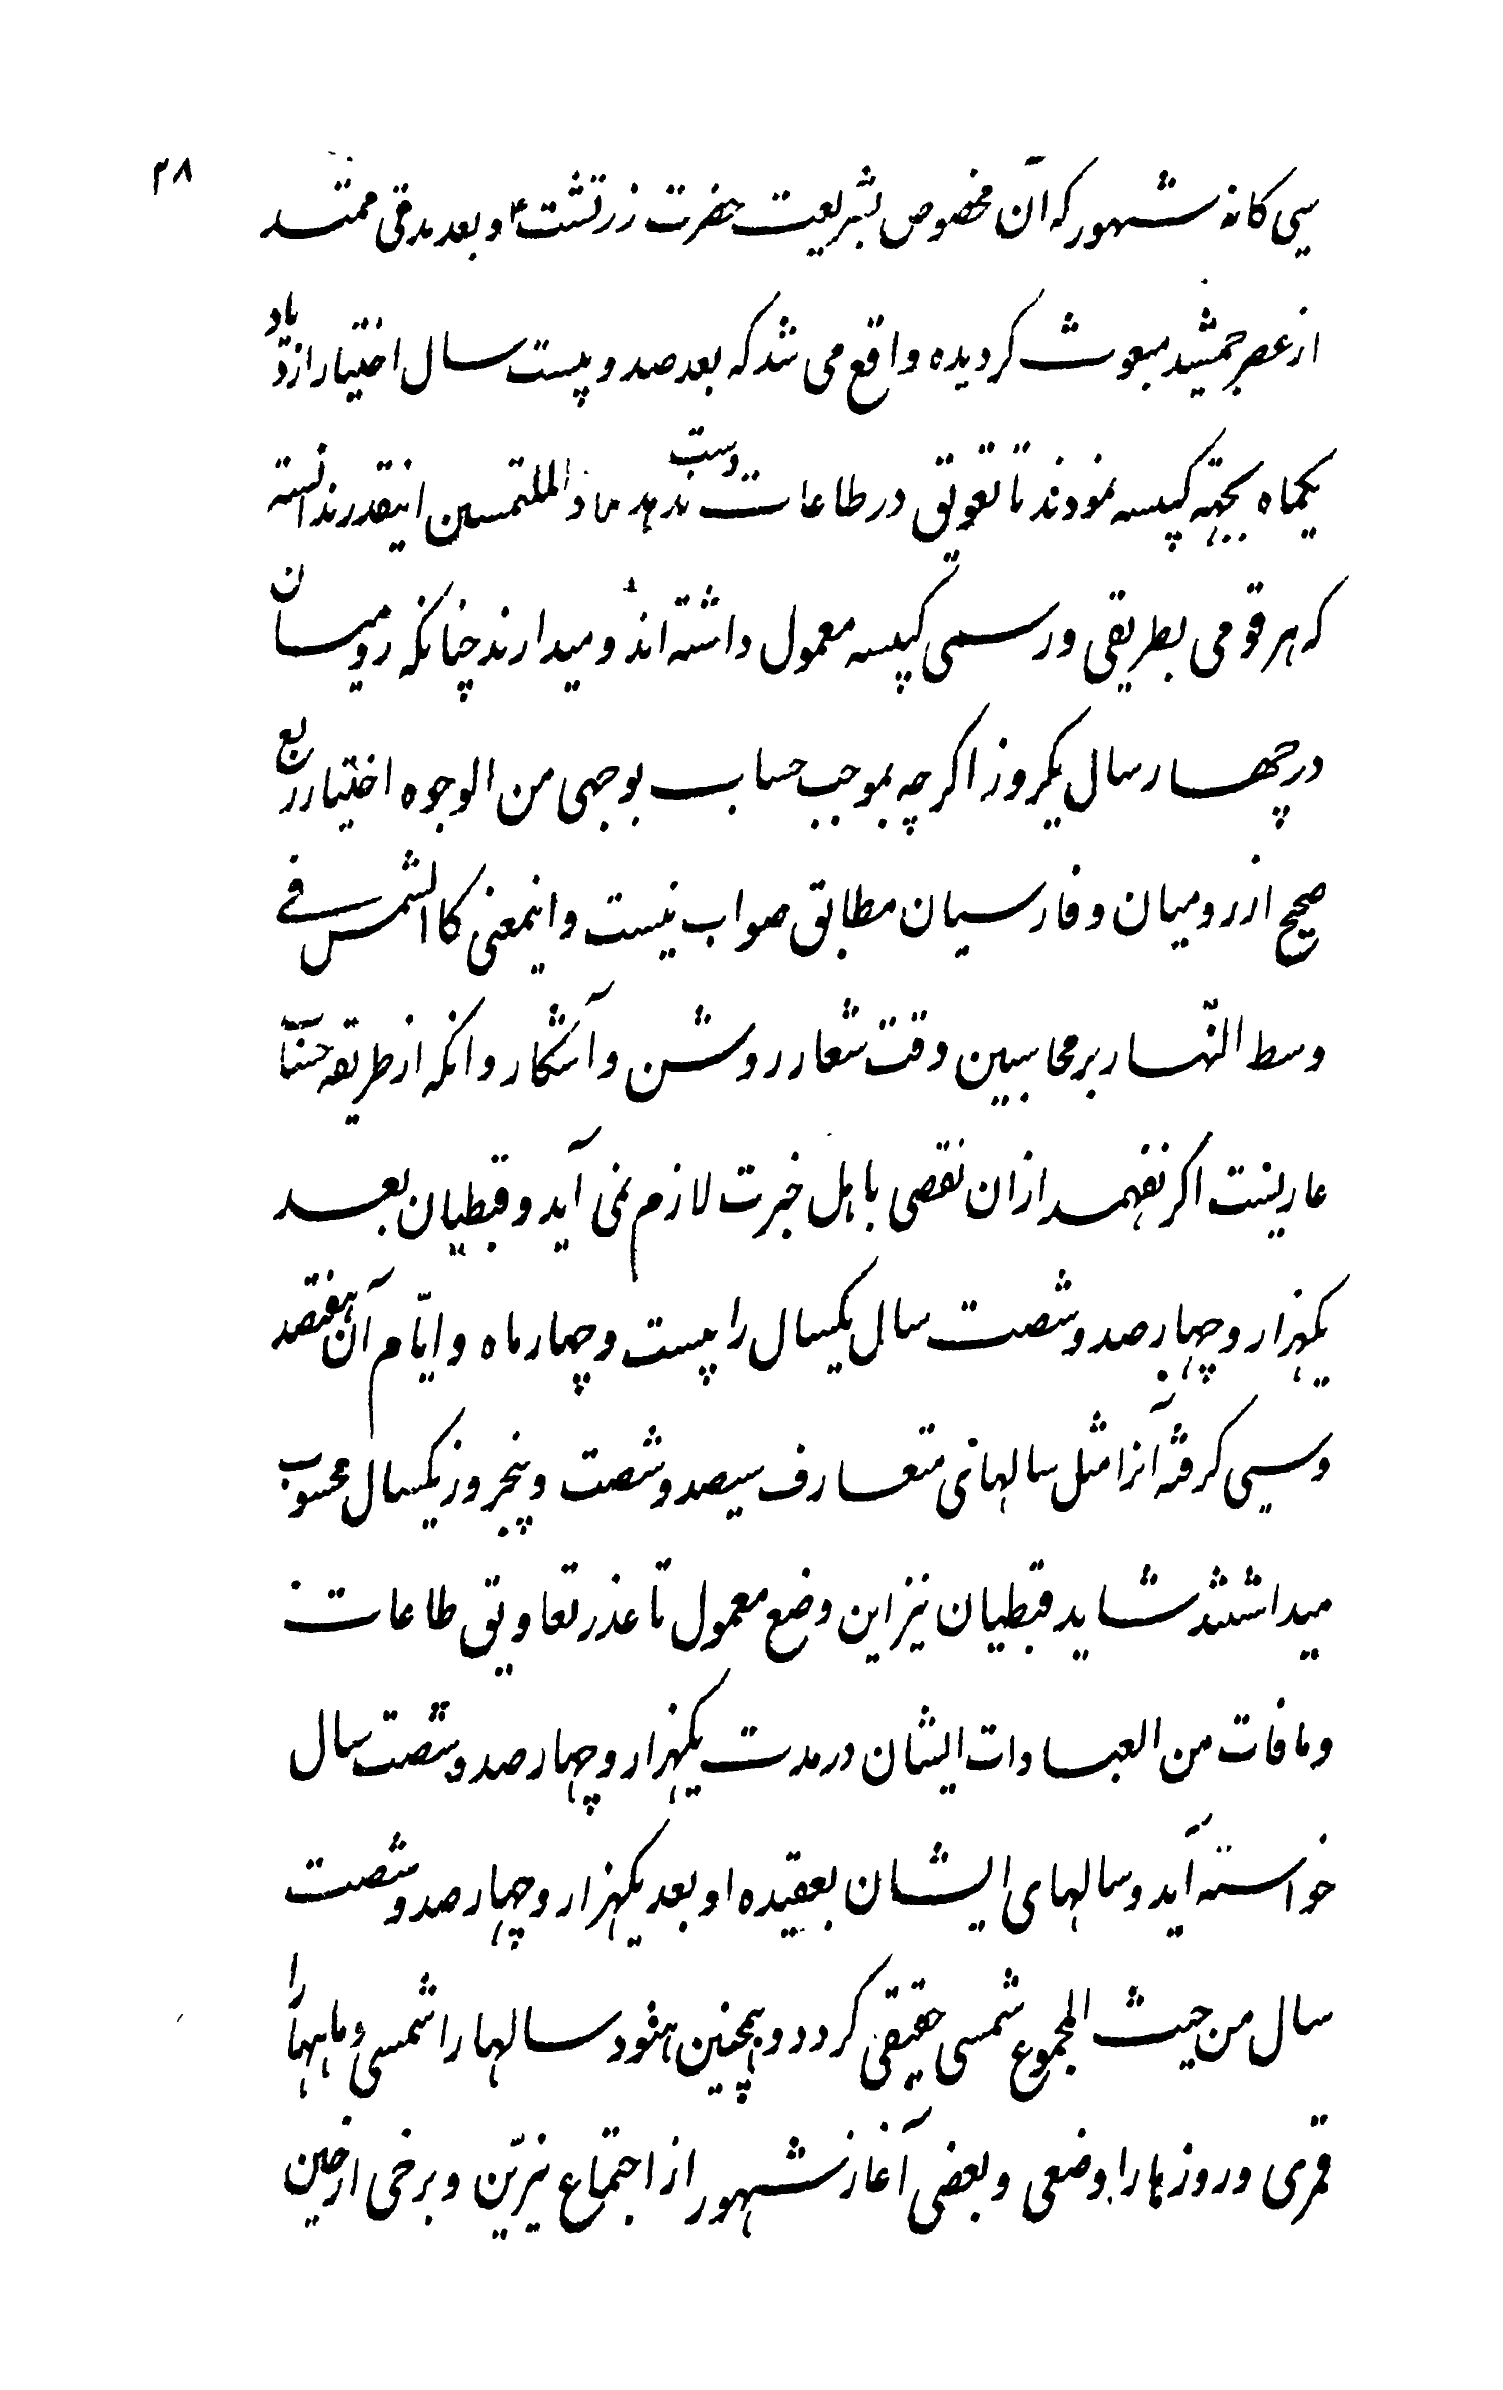 ۲۸
سی کانه شهور که آن مخصوص بشریعت حضرت زرتشت ۴ و بعد مدتی ممتد
از عصر جمشید مبعوث کردیده واقع می شد که بعد صد و بیست سال اختیار ازدیاد
یکماه بجهته کبیسه نمودند تا تعویق در طاعات دست ندهد ماد الملتمسین اینقدر ندانسته
که هر قومی بطریقی و رسمی کبیسه معمول داشته اند و میدارند چنانکه رومیان
در چهار سال یکروز اکرچه بموجب حساب بوجهی من الوجوه اختیار ربع
صحیح از رومیان و فارسیان مطابق صواب نیست و اینمعنی کاالشمس فی
وسط النّهار بر محاسبین وقت شعار روشن و آشکار و انکه از طریقه حساب
عاریست اکر نفهمد ازان نقصی باهل خبرت لازم نمی آید و قبطیان بعد
یکهزار و چهار صد و شصت سال یکسال را بیست و چهار ماه و ایّام آن هفتصد
و سی کرفته آنرا مثل سالهای متعارف سیصد و شصت و پنجروز یکسال محسوب
میداشتند شاید قبطیان نیز این وضع معمول تا عذر تعاویق طاعات
و مافات من العبادات ایشان در مدت یکهزار و چهار صد و شصت سال
خواسته آید و سالهای ایشان بعقیده او بعد یکهزار و چهار صد و شصت
سال من حیث المجموع شمسی حقیقی کردد و همچنین هنود سالها را شمسی و ماهها را
قمری و روزها را وضعی و بعضی آغاز شهور از اجتماع نیّرین و برخی از حین